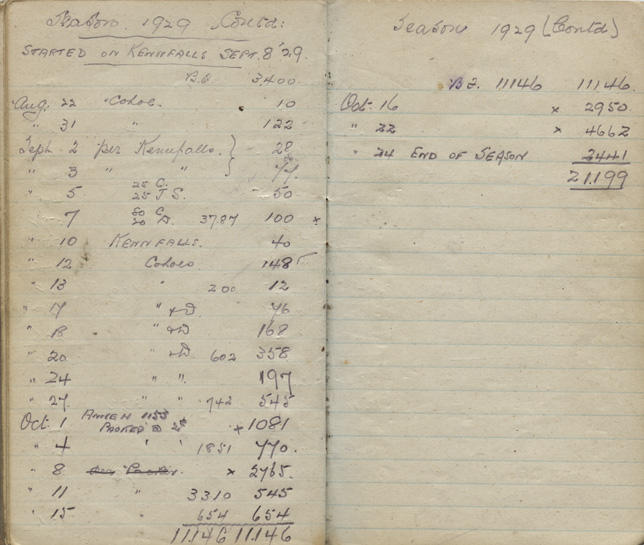 Season 1929 Contd:
STARTED ON KENNFALLS SEPT. 8 '29.
B.F. 3,400
Aug. 22 Cohoe. 10
" 31 " 122
Seph. 2 per Kennfalls. 28
" 3 " " 77
25 C.
" 5 25 J S. 50
80 C
" 7 20 D. 3787 100 x
" 10 KENNFALLS. 40
" 12 Cohoes 148
" 13 " 200 12
" 17 " +D 76
" 18 " +D 168
" 20 " +D 602 358
" 24 " " 197
" 27 " 742 545
Oct. 1 1155 x 1081
PACKED
" 4 " " 1851 770.
" 8 x 2765.
" 11 " 3310 545
" 15 " 654 654
11.146 11.146
Season 1929 (Contd)
B.F. 11146 11146.
Oct. 16 x 2950
" 22 x 4662
" 24 END OF SEASON 2441
21.199